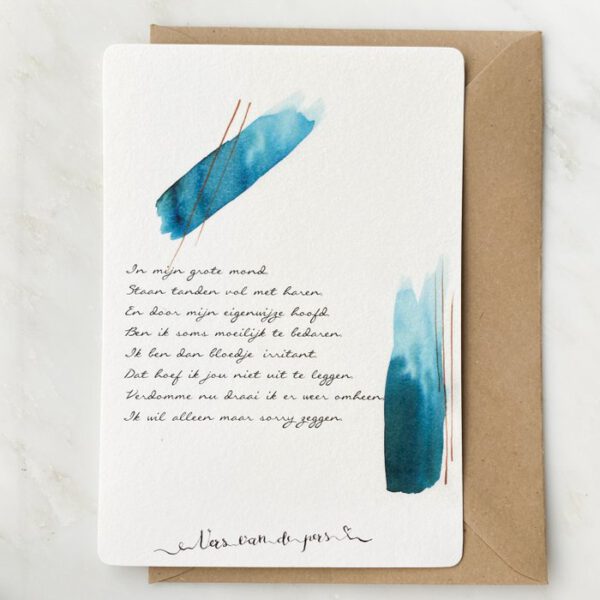 In mijn grote mond.
Staan tanden vol met haren.
En door mijn eigenwijze hoofd.
Ben ik soms moeilijk te bedaren.
Ik ben dan bloedje irritant.
Dat hoef ik jou niet uit te leggen.
Verdomme nu draai ik er weer omheen.
Ik wil alleen maar sorry zeggen.
Vers van de pers